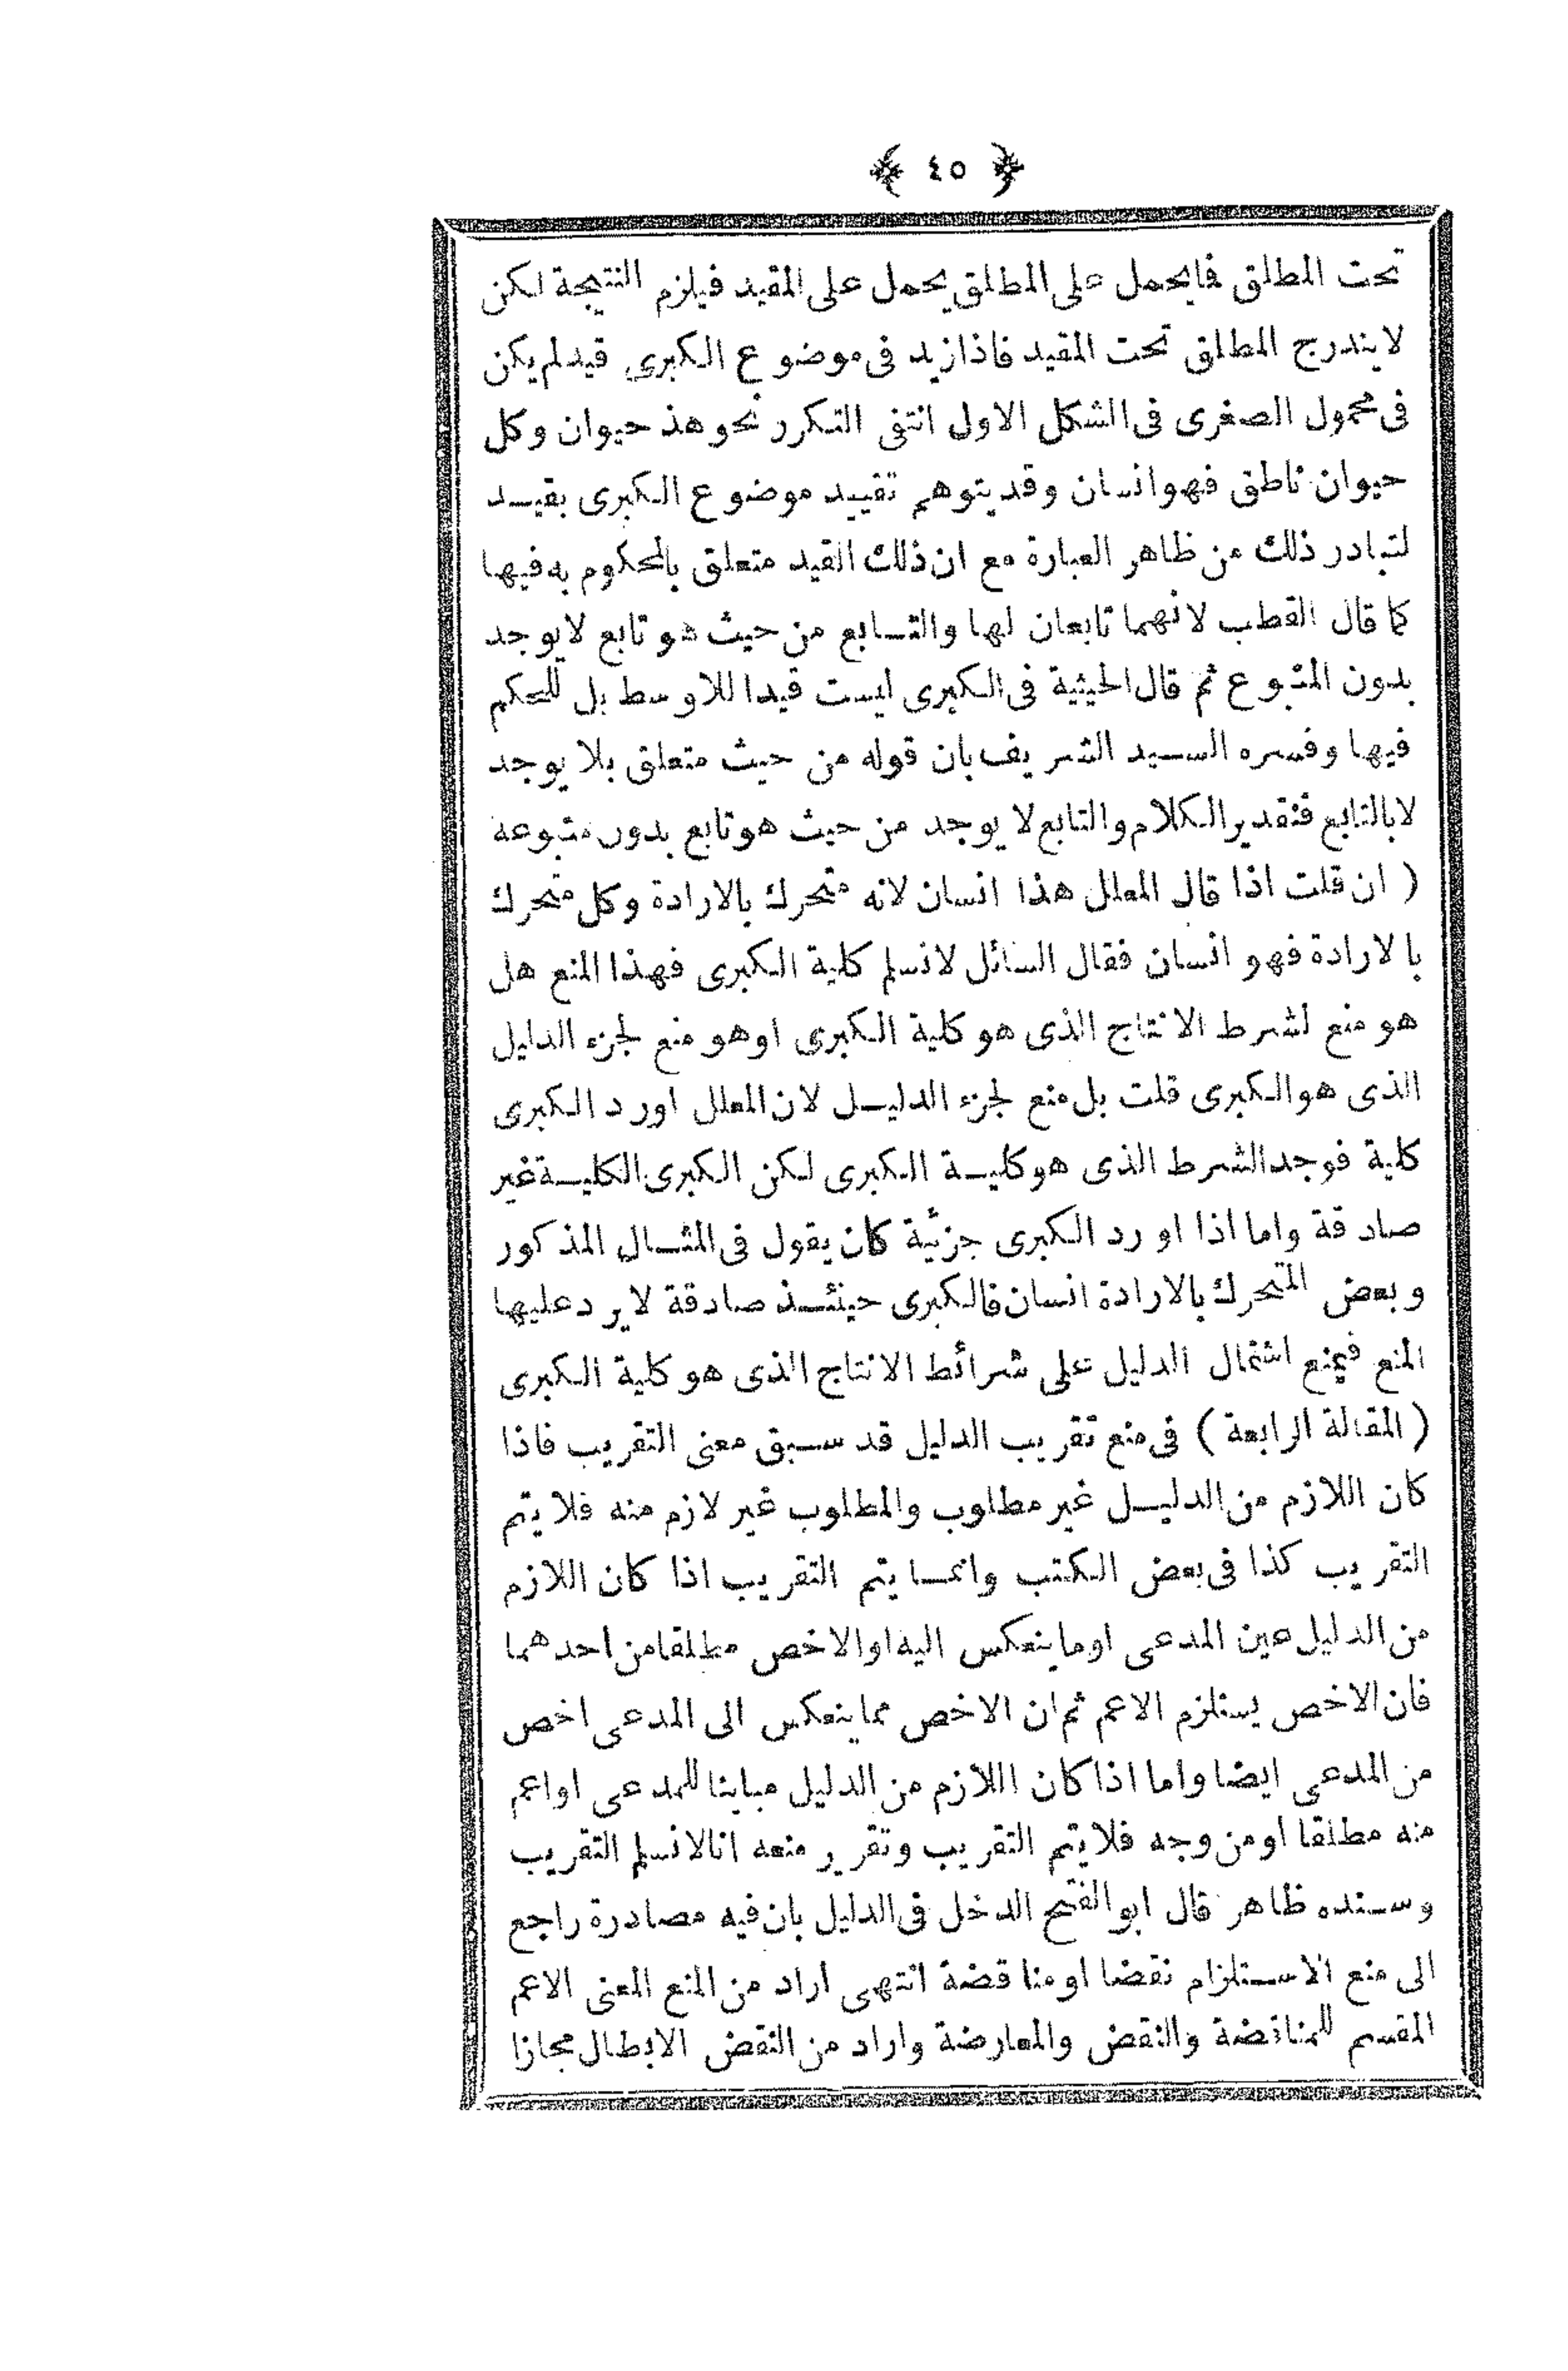 ﴿ ٤٥ ﴾
تحت المطلق فايحمل على المطلق يحمل على المقيد فيلزم النتيجة لكن
لا يندرج المطلق تحت المقيد فاذا زيد فى موضوع الكبرى قيد لم يكن
فى محمول الصغرى فى الشكل الاول انتفى التكرر نحو هذ حيوان وكل
حيوان ناطق فهو انسان وقد يتوهم تقييد موضوع الكبرى بقيد
لتبادر ذلك من ظاهر العبارة مع ان ذلك القيد متعلق بالمحكوم به فيها
كما قال القطب لانهما تابعان لها والتابع من حيث هو تابع لا يوجد
بدون المتبوع ثم قال الحيثية فى الكبرى ليست قيدا للاوسط بل للحكم
فيها وفسره السيد الشريف بان قوله من حيث متعلق بلا يوجد
لا بالتابع فتقدير الكلام والتابع لا يوجد من حيث هو تابع بدون متبوعه
( ان قلت اذا قال المعلل هذا انسان لانه متحرك بالارادة وكل متحرك
بالارادة فهو انسان فقال السائل لا نسلم كلية الكبرى فهذا المنع هل
هو منع لشرط الانتاج الذى هو كلية الكبرى او هو منع لجزء الدليل
الذى هو الكبرى قلت بل منع لجزء الدليل لان المعلل اورد الكبرى
كلية فوجد الشرط الذى هو كلية الكبرى لكن الكبرى الكلية غير
صادقة واما اذا اورد الكبرى جزئية كان يقول فى المثال المذكور
وبعض المتحرك بالارادة انسان فالكبرى حينئذ صادقة لا يرد عليها
المنع فيمنع اشتمال الدليل على شرائط الانتاج الذى هو كلية الكبرى
( المقالة الرابعة ) فى منع تقريب الدليل قد سبق معنى التقريب فاذا
كان اللازم من الدليل غير مطلوب والمطلوب غير لازم منه فلا يتم
التقريب كذا فى بعض الكتب وانما يتم التقريب اذا كان اللازم
من الدليل عين المدعى او ما ينعكس اليه او الاخص مطلقا من احدهما
فان الاخص يستلزم الاعم ثم ان الاخص مما ينعكس الى المدعى اخص
من المدعى ايضا واما اذا كان اللازم من الدليل مباينا للمدعى او اعم
منه مطلقا او من وجه فلا يتم التقريب وتقرير منعه انا لا نسلم التقريب
وسنده ظاهر قال ابو الفتح الدخل فى الدليل بان فيه مصادرة راجع
الى منع الاستلزام نقضا او مناقضة انتهى اراد من المنع المعنى الاعم
المقسم للمناقضة والنقض والمعارضة واراد من النقض الابطال مجازا